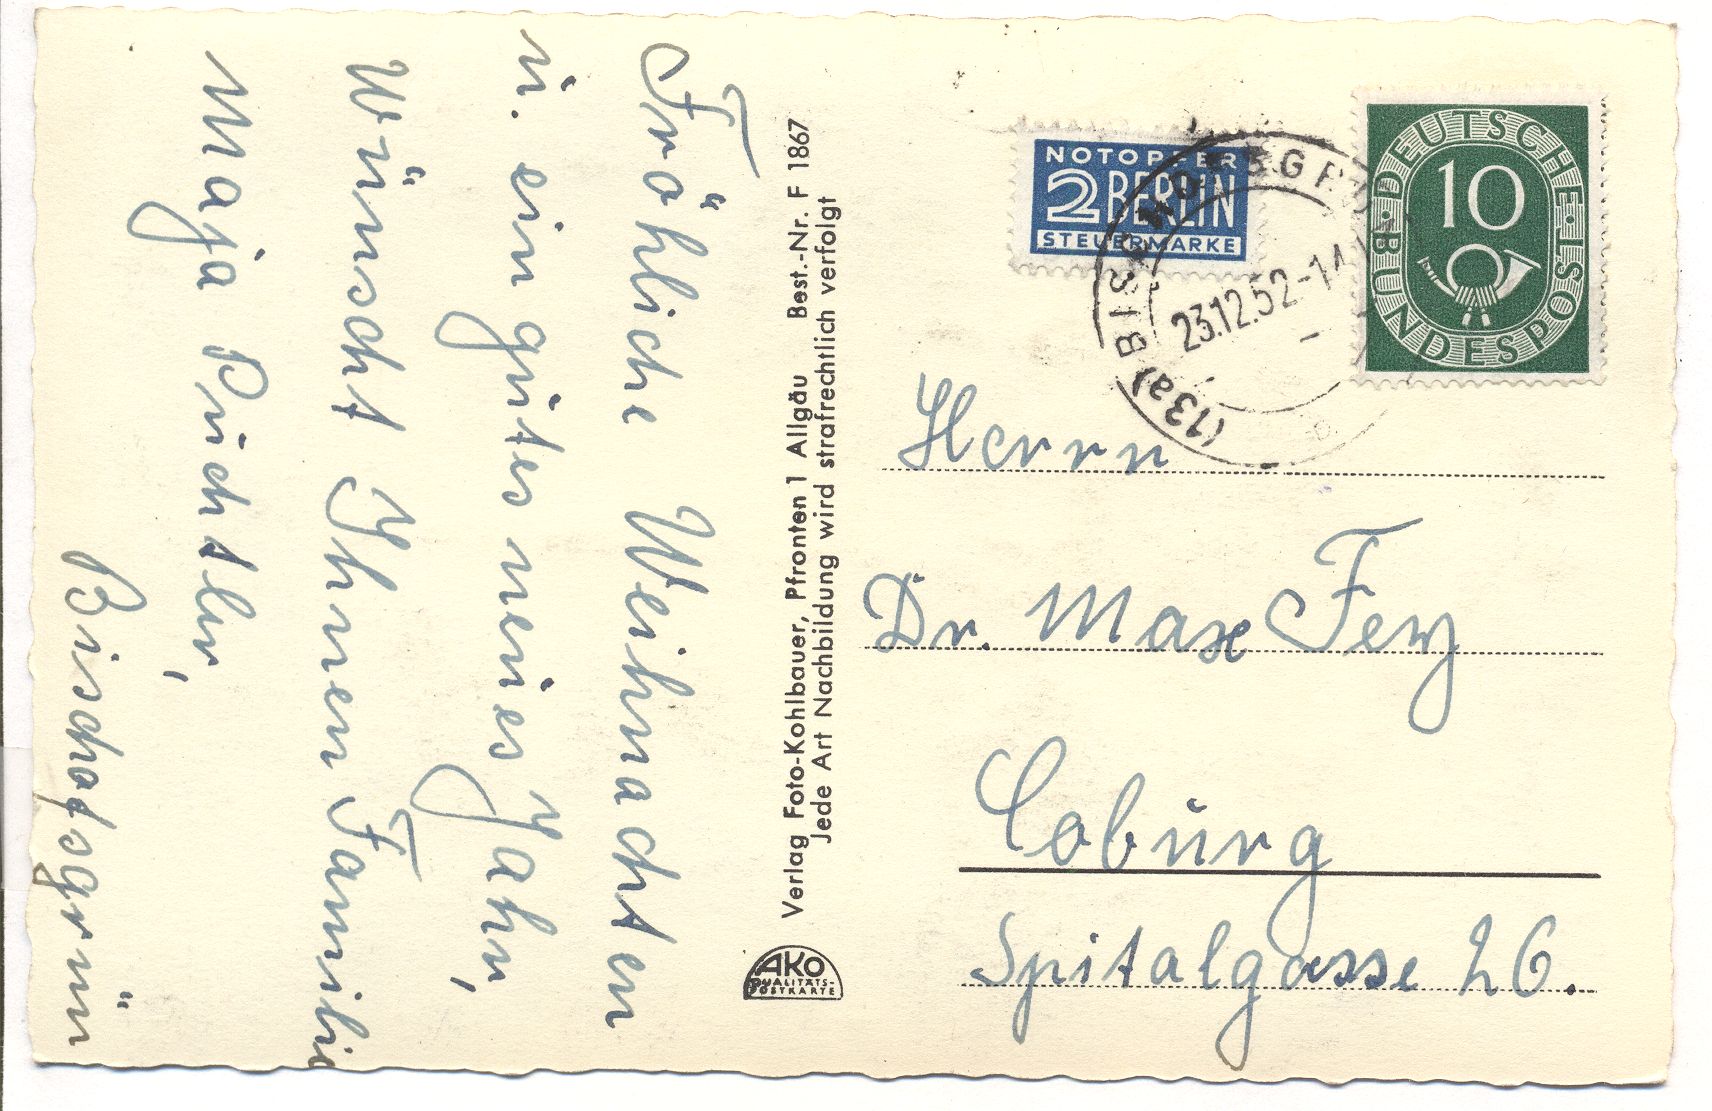 Fröhliche Weihnachten
u. ein gutes neues Jahr,
Wünscht Ihnen Familie
Maja Püchtler,
Bischofsgrün
Verlag Foto-Kohlbauer, Pfronten 1 Allgäu Best.-Nr. F 1867
Jede Art Nachbildung wird strafrechtlich verfolgt
AKO
QUALITÄTS-
POSTKARTE
NOTOPFER
2 BERLIN
STEUERMARKE
(13a)
23.12.52-14
DEUTSCHE BUNDESPOST
10
Herrn
Dr. Max Fey
Coburg
Spitalgasse 26.